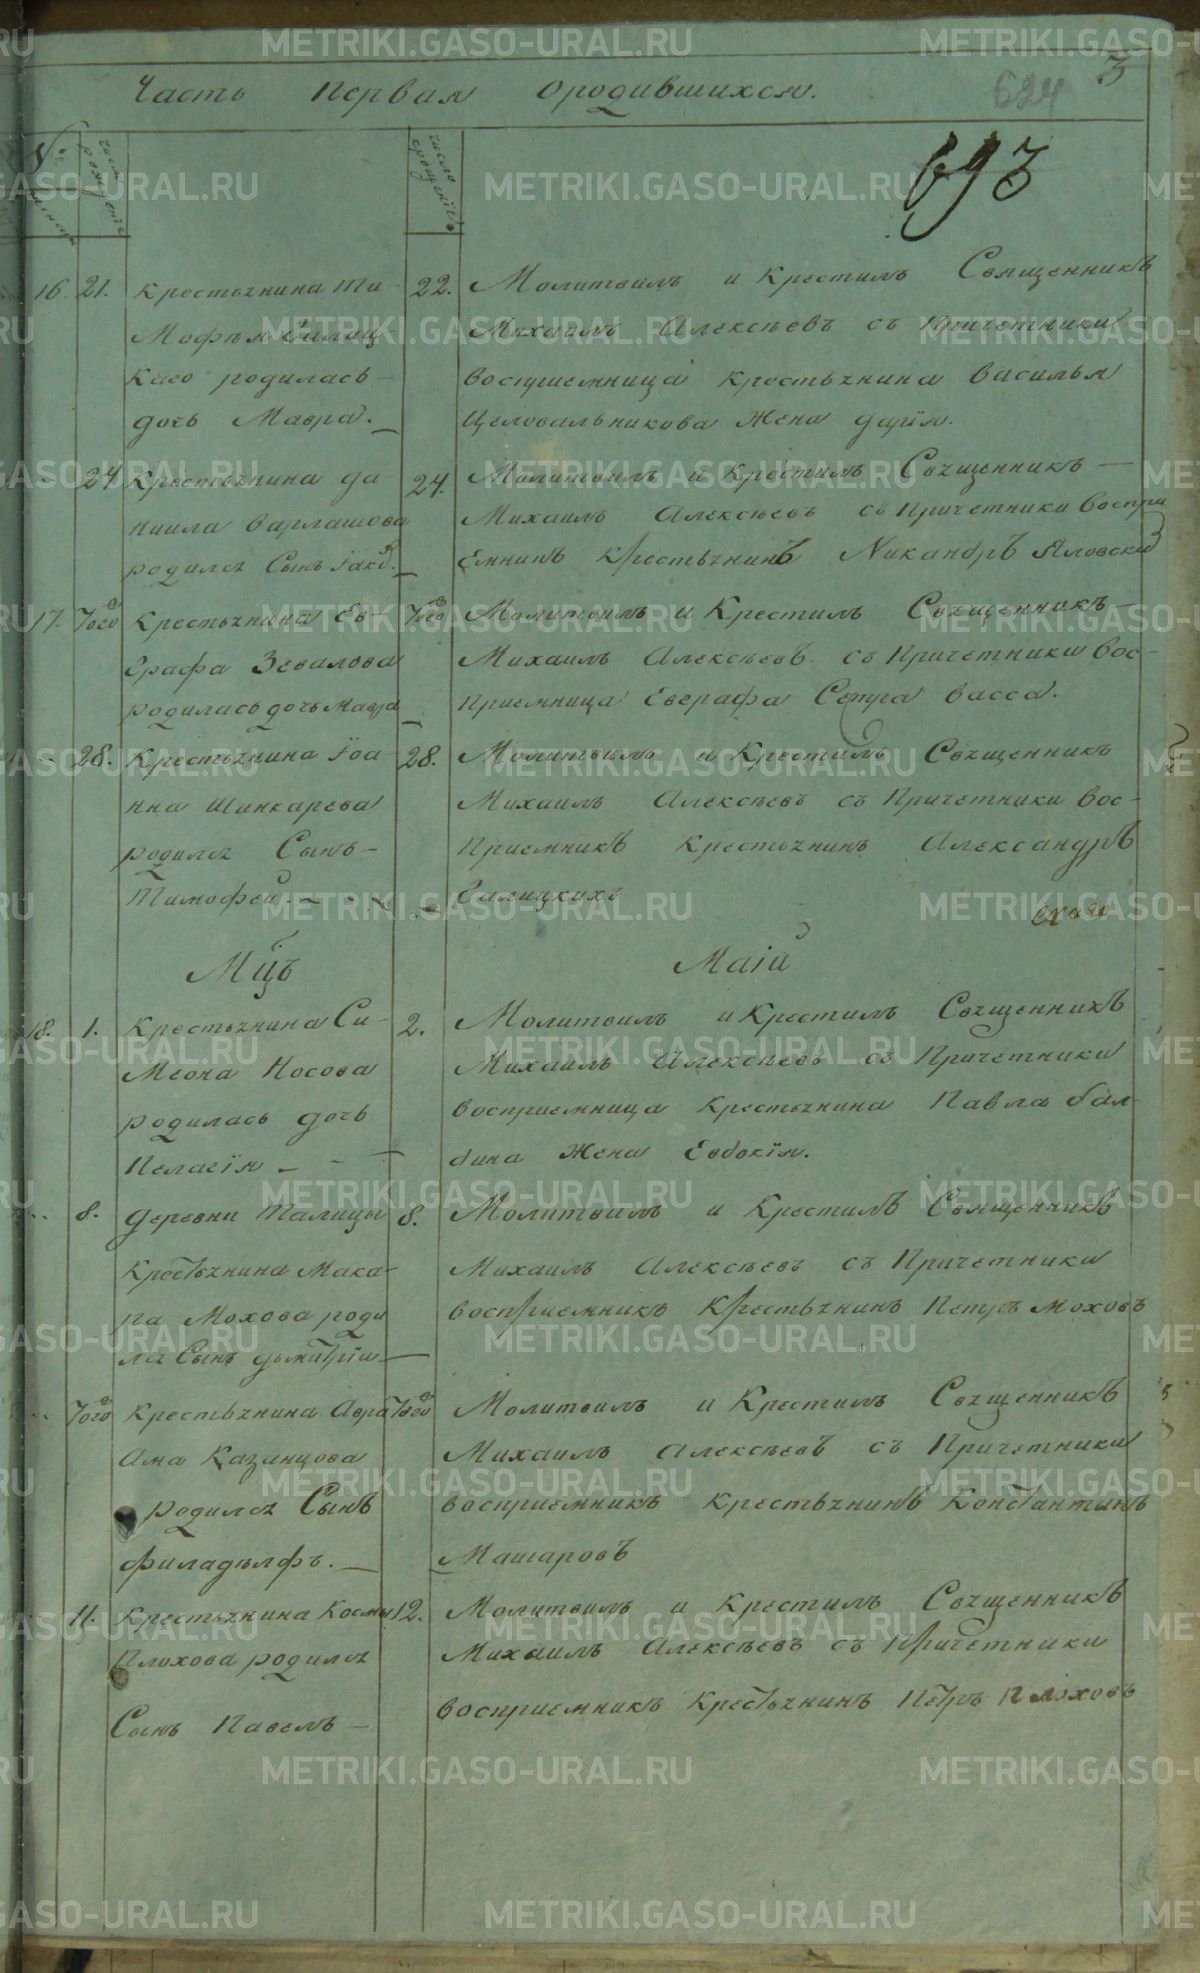 3
694
Часть Первая ородившихся.
693
16. 21. Крестьянина Ти-
мофѣя Силиц-
каго родилась
дочь Мавра.
22. Молитвилъ и Крестилъ Священникъ
Михаилъ Алексѣевъ съ Причетники
восприемница крестьянина Василья
Целовальникова Жена дарія.
24 Крестьянина да-
ниила Варлашова
родился Сынъ Іаковъ.
24. Молитвилъ и Крестилъ Священникъ
Михаилъ Алексѣевъ съ Причетники воспри
емникъ Крестьянинъ Никандръ Яловский
17. Того Крестьянина Ев-
графа Зевалова
родилась дочь Мавра
Того Молитвилъ и Крестилъ Священникъ
Михаилъ Алексѣевъ съ Причетники вос-
приемница Евграфа Сетра васса.
28. Крестьянина Іоа-
нна Шинкарева
родился Сынъ
Тимофей.
28. Молитвилъ и Крестилъ Священникъ
Михаилъ Алексѣевъ съ Причетники вос-
приемникъ крестьянинъ Александръ
Силицкихъ
Мцъ Маій
18. 1. Крестьянина Си-
меона Носова
родилась дочь
Пелагія
2. Молитвилъ и Крестилъ Священникъ
Михаилъ Алексѣевъ съ Причетники
восприемница крестьянина Павла бал-
дина Жена Евдокія.
8. деревни Талицы
Крестьянина Мака-
ра Мохова роди
лся Сынъ дымитрій
8. Молитвилъ и Крестилъ Священникъ
Михаилъ Алексѣевъ съ Причетники
восприемникъ Крестьянинъ Петръ Моховъ
Того Крестьянина Авра
ама Казанцова
родился Сынъ
филадѣлфъ.
Того Молитвилъ и Крестилъ Священникъ
Михаилъ Алексѣевъ съ Причетники
восприемникъ крестьянинъ Константинъ
Машаровъ
11. Крестьянина Космы
Плохова родился
Сынъ Павелъ
12. Молитвилъ и Крестилъ Священникъ
Михаилъ Алексѣевъ съ Причетники
восприемникъ Крестьянинъ Петръ Плоховъ
METRIKI.GASO-URAL.RU